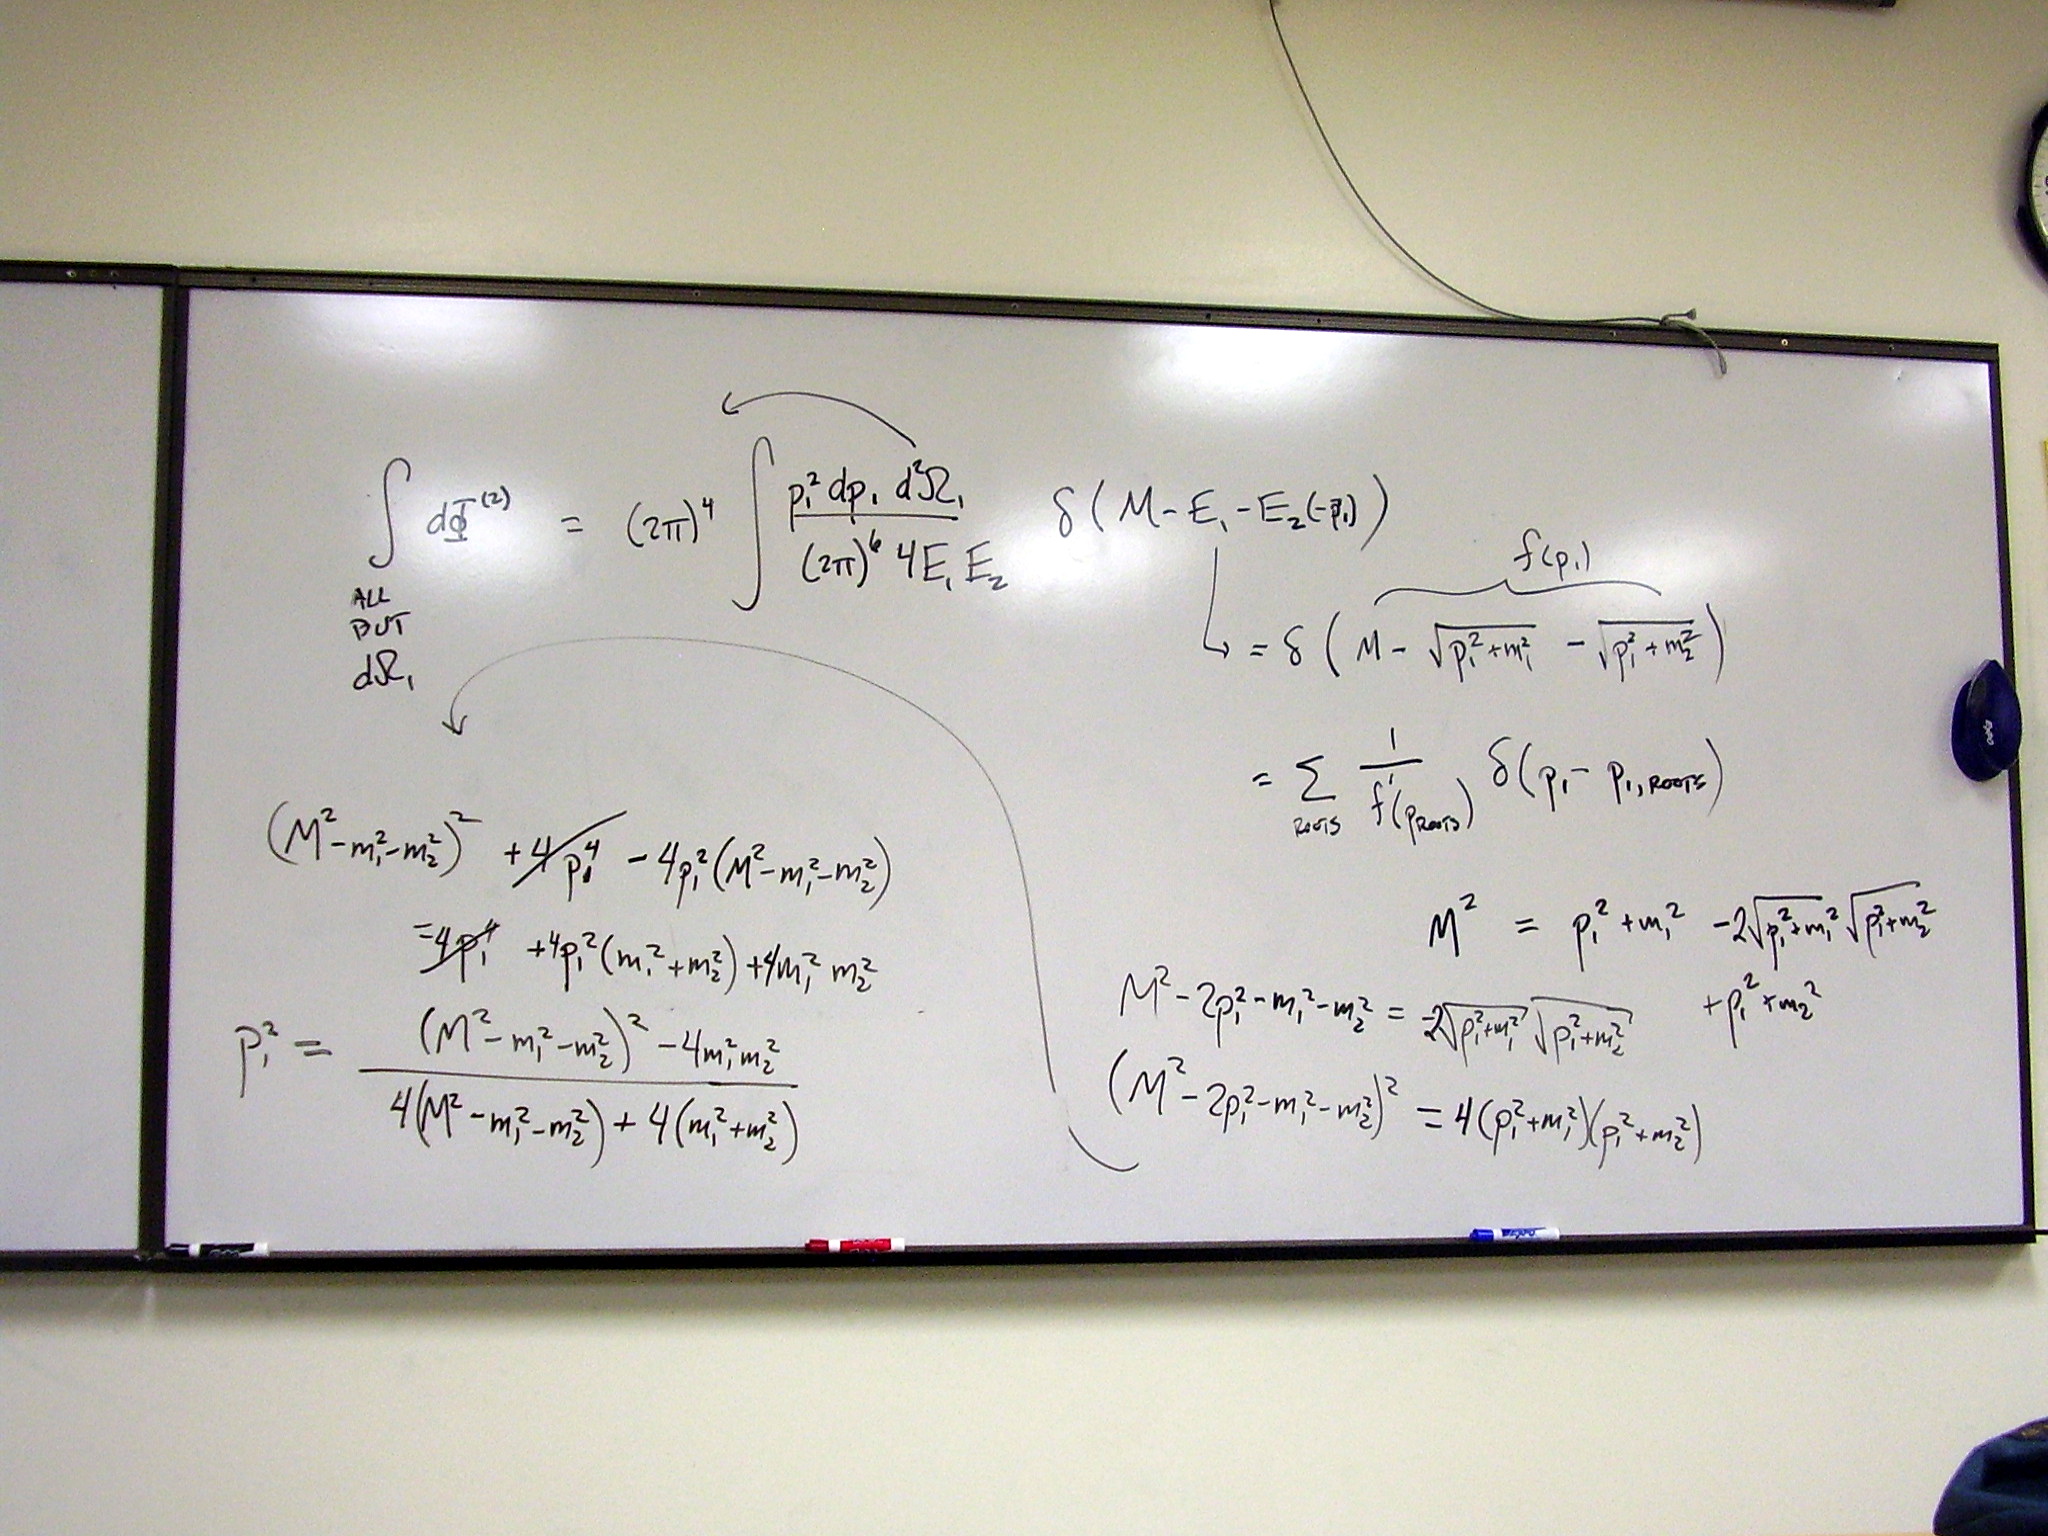 ∫ dΦ⁽²⁾ = (2π)⁴ ∫ p₁² dp₁ d²Ω₁ / (2π)⁶ 4E₁ E₂ δ(M - E₁ - E₂(-p₁))
ALL
BUT
dΩ₁
f(p₁)
= δ(M - √(p₁² + m₁²) - √(p₁² + m₂²))
= Σ ROOTS 1 / f'(p ROOTS) δ(p₁ - p₁, ROOTS)
M² = p₁² + m₁² - 2√(p₁² + m₁²) √(p₁² + m₂²)
+ p₁² + m₂²
M² - 2p₁² - m₁² - m₂² = -2√(p₁² + m₁²) √(p₁² + m₂²)
(M² - 2p₁² - m₁² - m₂²)² = 4(p₁² + m₁²)(p₁² + m₂²)
(M² - m₁² - m₂²)² + 4p₁⁴ - 4p₁²(M² - m₁² - m₂²)
= 4p₁⁴ + 4p₁²(m₁² + m₂²) + 4m₁² m₂²
p₁² = (M² - m₁² - m₂²)² - 4m₁² m₂² / 4(M² - m₁² - m₂²) + 4(m₁² + m₂²)